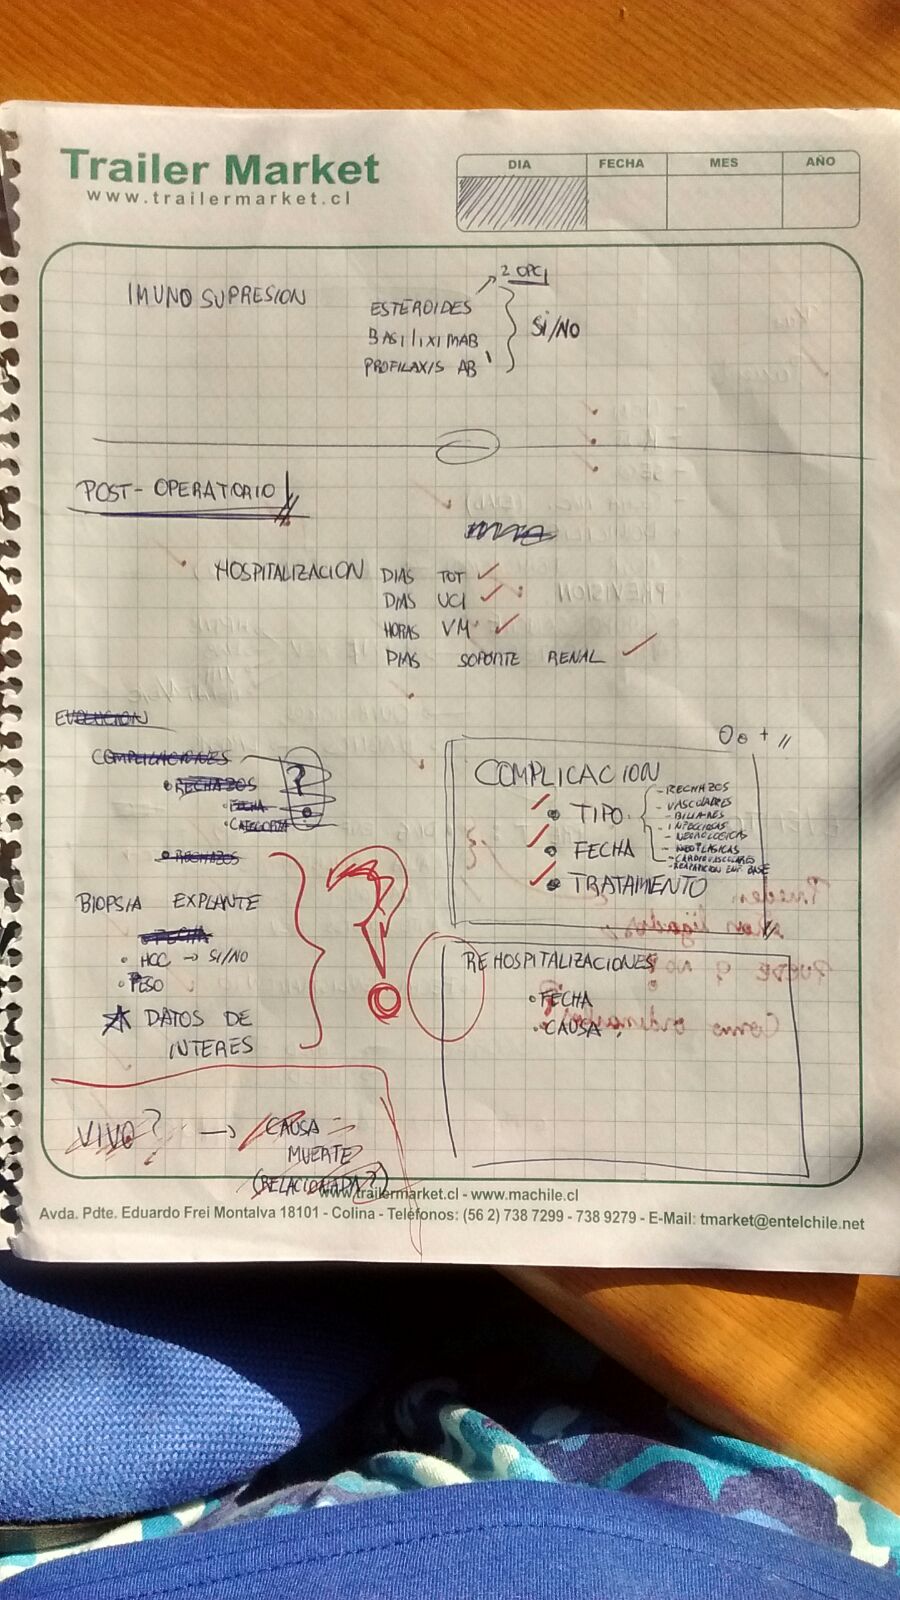 Trailer Market
www.trailermarket.cl
DIA FECHA MES AÑO
2 OPC
IMUNO SUPRESION
ESTEROIDES
BASILIXIMAB
PROFILAXIS AB
SI/NO
POST-OPERATORIO
HOSPITALIZACION
DIAS TOT
DIAS UCI
HORAS VM
DIAS SOPORTE RENAL
EVOLUCION
COMPLICACIONES
• RECHAZOS
• FECHA
• CATEGORIA
?
• RECHAZOS
BIOPSIA EXPLANTE
• FECHA
• HCC → SI/NO
• PESO
DATOS DE
INTERES
?
COMPLICACION
• TIPO
- RECHAZOS
- VASCULARES
- BILIARES
- INFECCIOSAS
- NEUROLOGICAS
- NEOPLASICAS
- CARDIOVASCULARES
- REAPARICION ENF. BASE
• FECHA
• TRATAMIENTO
REHOSPITALIZACIONES
• FECHA
• CAUSA
VIVO? → CAUSA
MUERTE
(RELACIONADA?)
www.trailermarket.cl - www.machile.cl
Avda. Pdte. Eduardo Frei Montalva 18101 - Colina - Teléfonos: (56 2) 738 7299 - 738 9279 - E-Mail: tmarket@entelchile.net